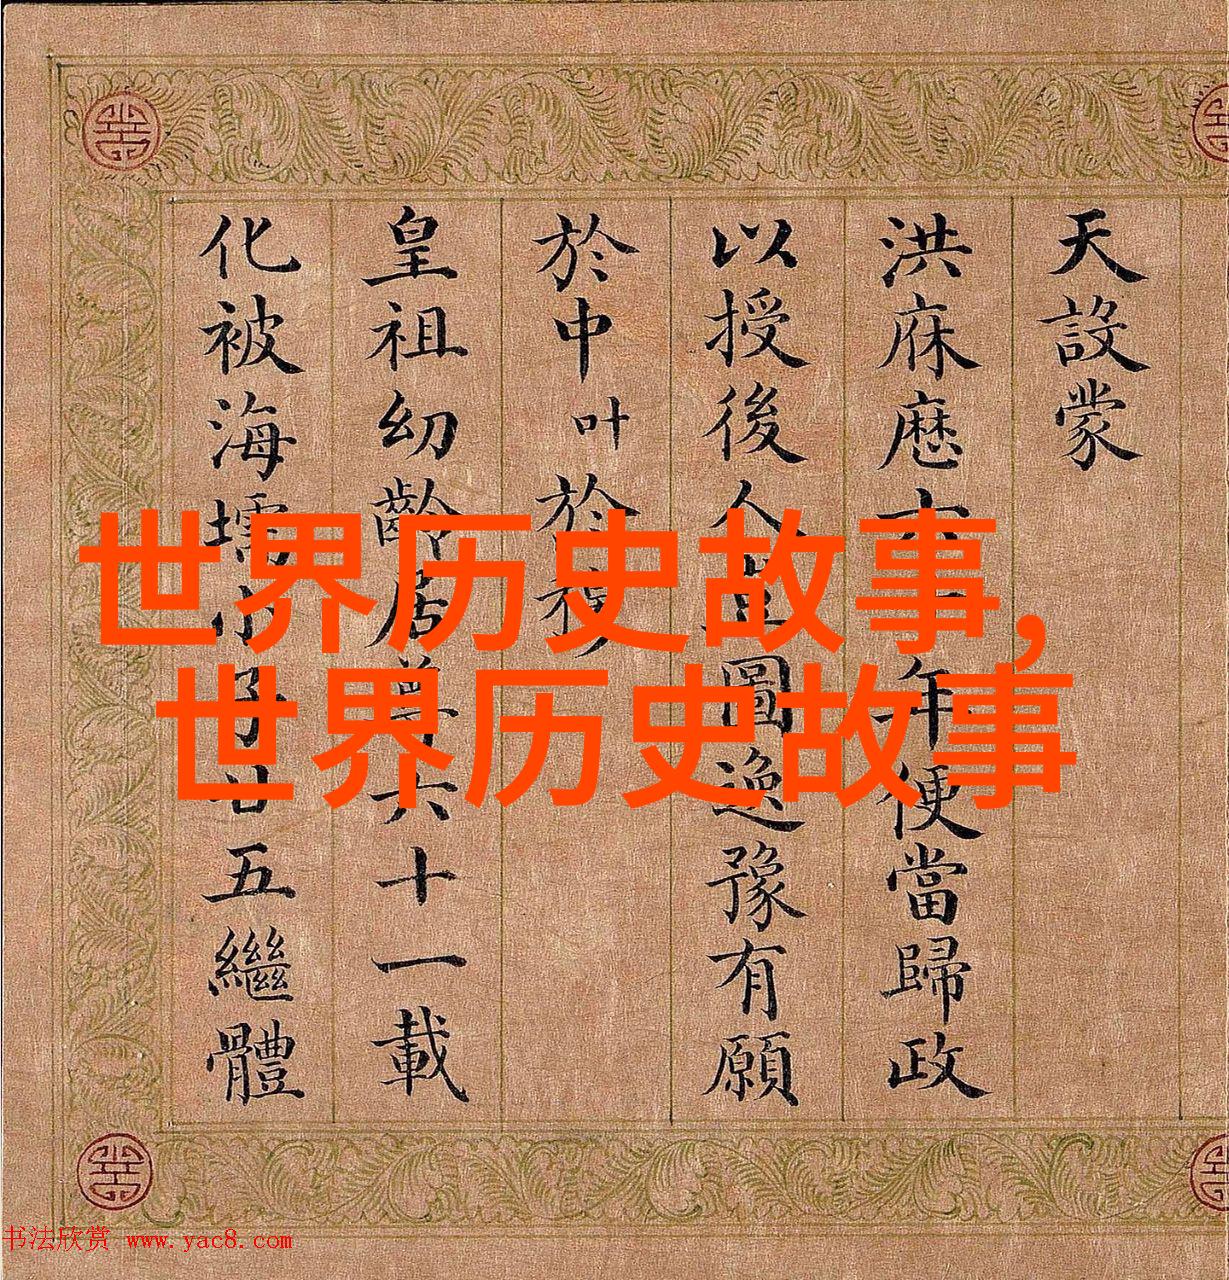 天設蒙
洪庥厯年便當歸政
以授後人圖逸豫有願
於中叶於穆
皇祖幼齡居尊六十一載
化被海壖小子廿五繼體
世界历史故事,
世界历史故事
书法欣赏 www.yac8.com